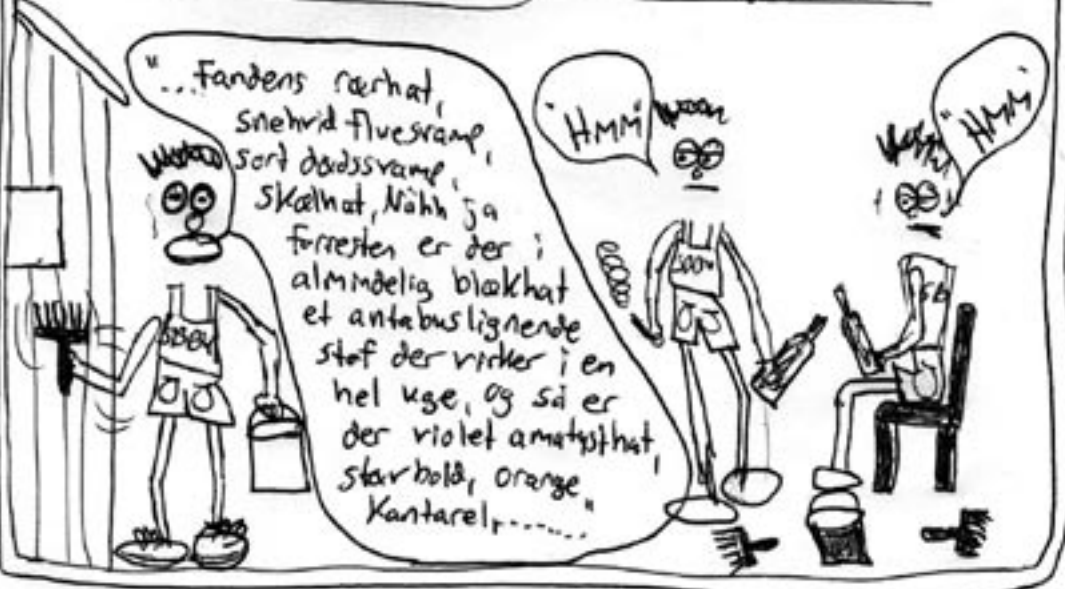 "...Fandens rørhat,
snehvid fluesvamp,
sort dødssvamp,
skælhat, Nåhh ja
forresten er der i
almindelig blækhat
et antabuslignende
stof der virker i en
hel uge, og så er
der violet amatysthat,
støvbold, orange
Kantarel,......."
"HMM"
"HMM"